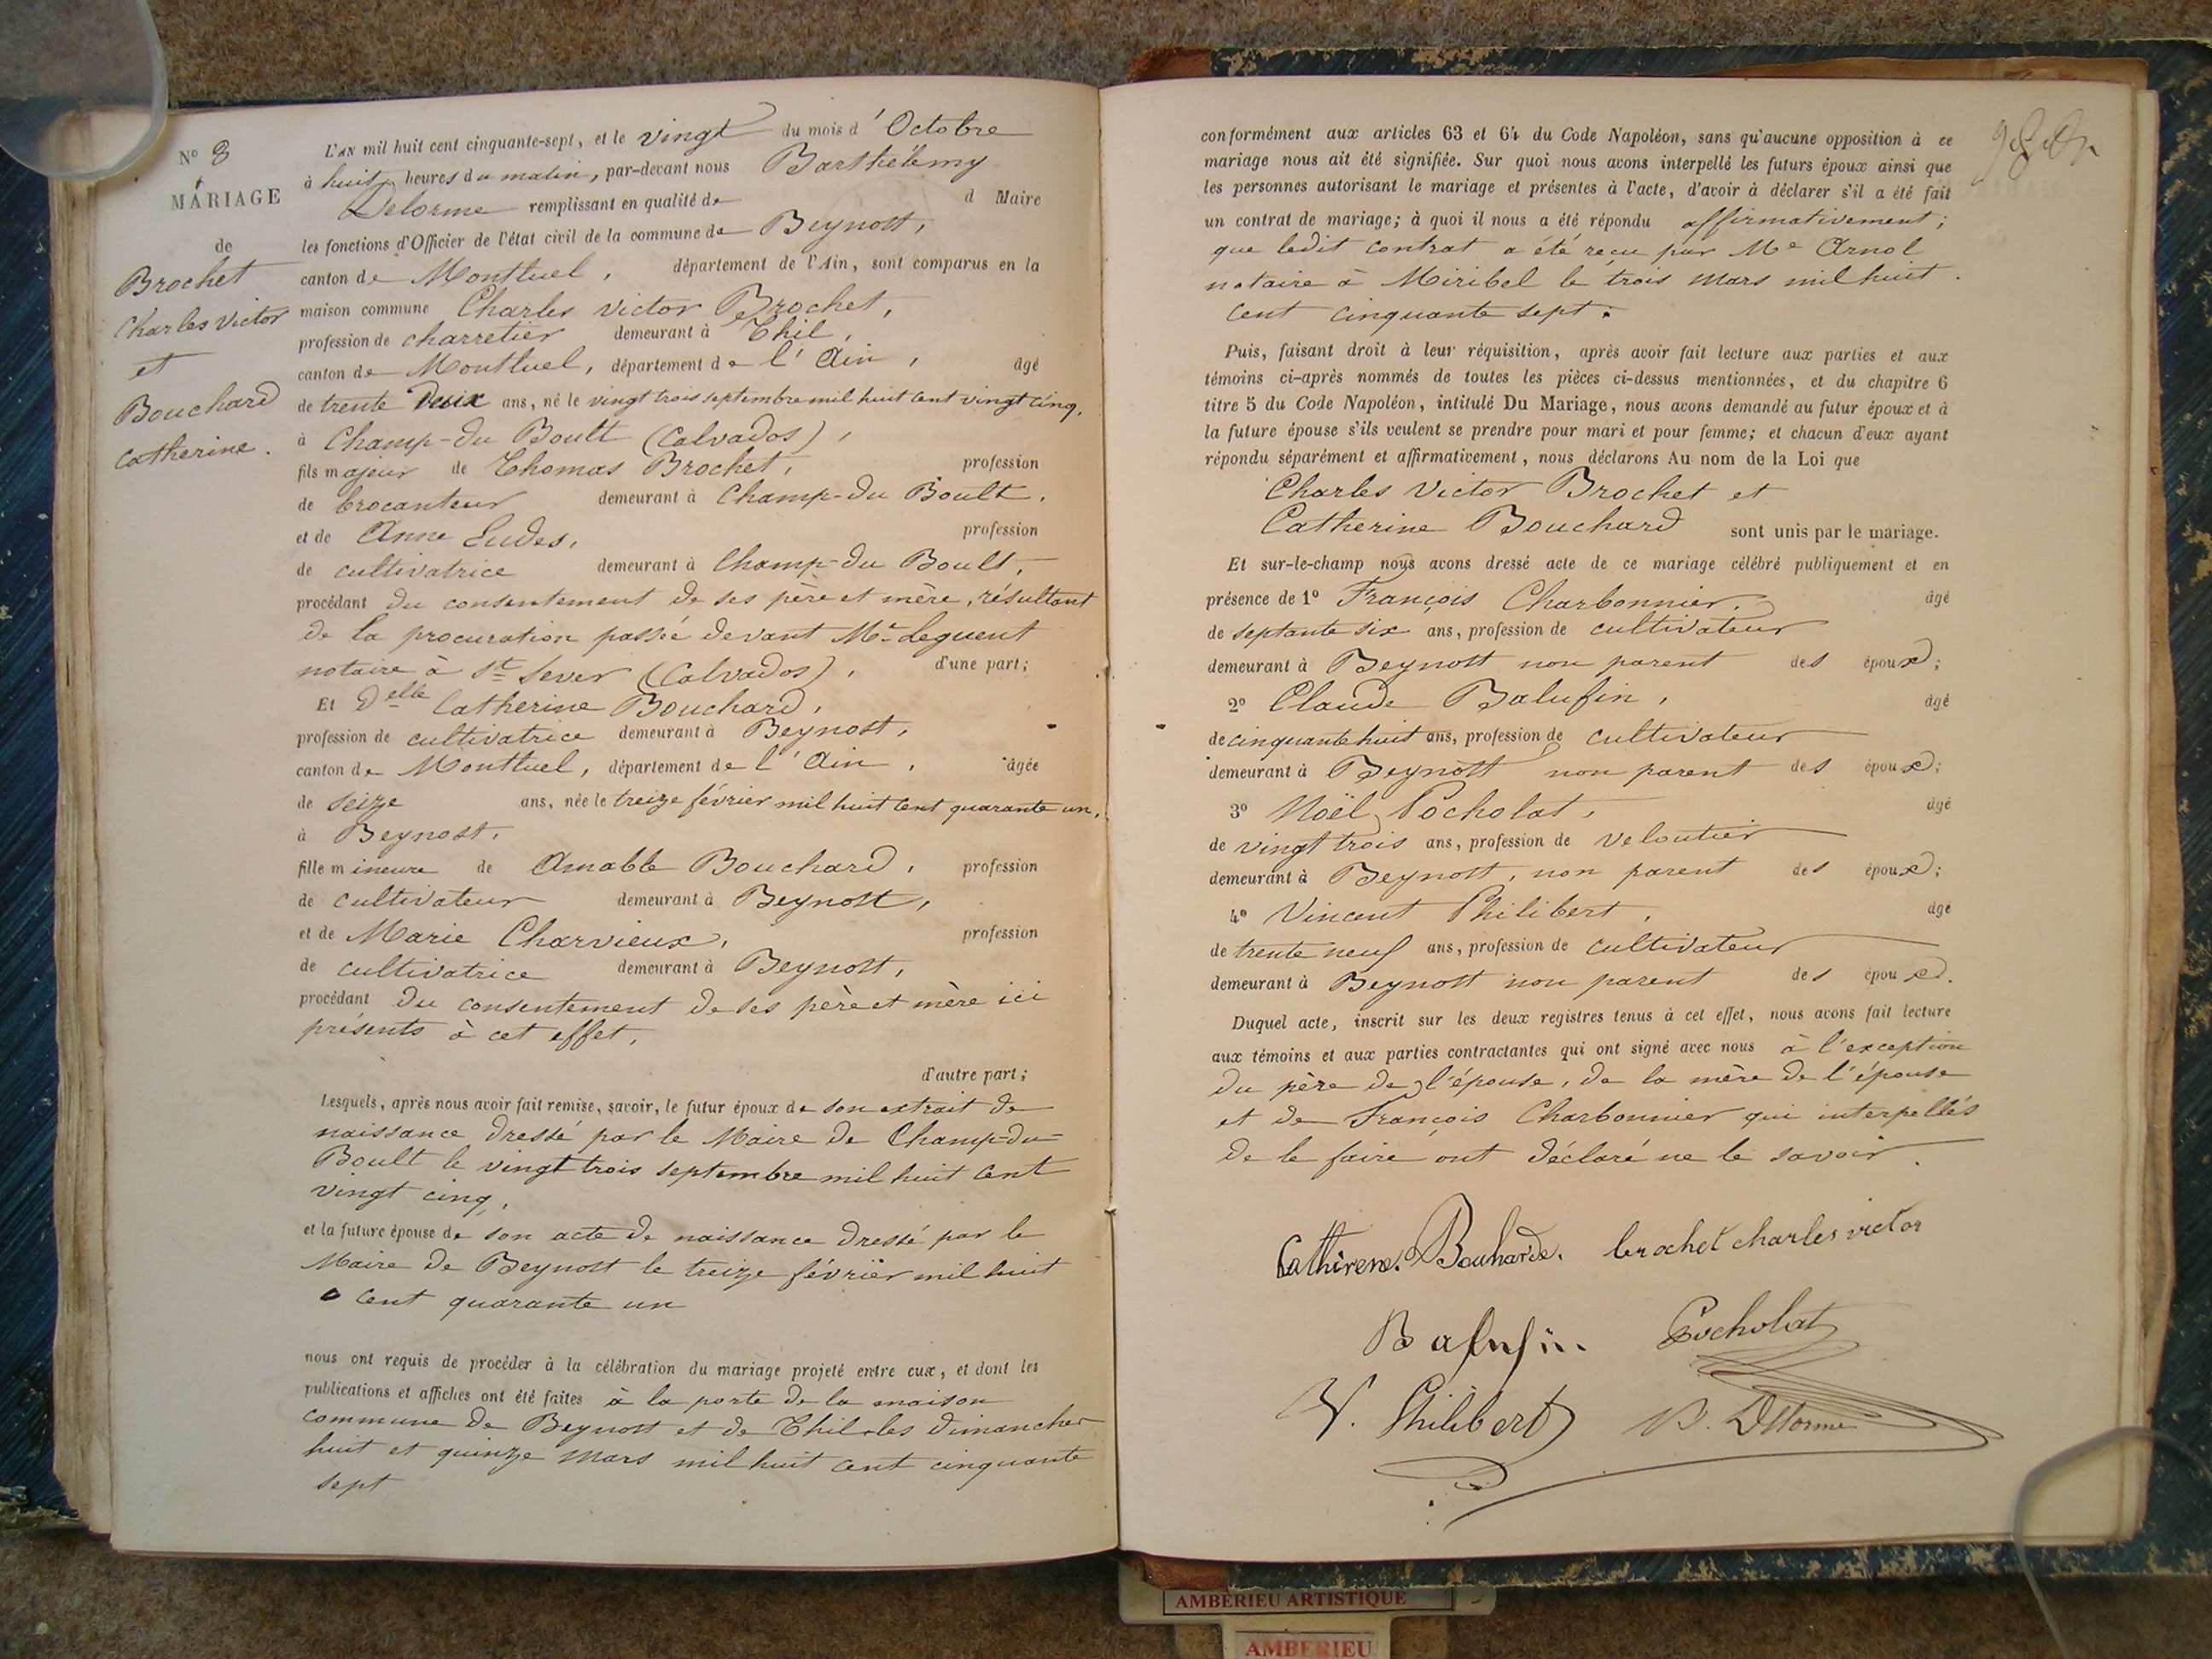 N° 8
MARIAGE
de
Brochet
Charles Victor
et
Bouchard
Catherine.
L'AN mil huit cent cinquante-sept, et le vingt du mois d'Octobre
à huit heures du matin, par-devant nous Barthélemy
Delorme remplissant en qualité de d Maire
les fonctions d'Officier de l'état civil de la commune de Beynost,
canton de Montluel, département de l'Ain, sont comparus en la
maison commune Charles Victor Brochet,
profession de charretier demeurant à Thil,
canton de Montluel, département de l'Ain, âgé
de trente deux ans, né le vingt trois septembre mil huit cent vingt cinq,
à Champ-du Boult (Calvados),
fils majeur de Thomas Brochet, profession
de brocanteur demeurant à Champ-du Boult.
et de Anne Eudes, profession
de cultivatrice demeurant à Champ-du Boult,
procédant du consentement de ses père et mère, résultant
de la procuration passée devant Me Leguent
notaire à St Sever (Calvados), d'une part;
Et Delle Catherine Bouchard,
profession de cultivatrice demeurant à Beynost,
canton de Montluel, département de l'Ain, âgée
de seize ans, née le treize février mil huit cent quarante un,
à Beynost,
fille mineure de Amable Bouchard, profession
de cultivateur demeurant à Beynost,
et de Marie Charvieux, profession
de cultivatrice demeurant à Beynost,
procédant du consentement de ses père et mère ici
présents à cet effet,
d'autre part;
Lesquels, après nous avoir fait remise, savoir, le futur époux de son extrait de
naissance dressé par le Maire de Champ-du-
Boult le vingt trois septembre mil huit cent
vingt cinq,
et la future épouse de son acte de naissance dressé par le
Maire de Beynost le treize février mil huit
cent quarante un
nous ont requis de procéder à la célébration du mariage projeté entre eux, et dont les
publications et affiches ont été faites à la porte de la maison
commune de Beynost et de Thil les dimanches
huit et quinze mars mil huit cent cinquante
sept
conformément aux articles 63 et 64 du Code Napoléon, sans qu'aucune opposition à ce
mariage nous ait été signifiée. Sur quoi nous avons interpellé les futurs époux ainsi que
les personnes autorisant le mariage et présentes à l'acte, d'avoir à déclarer s'il a été fait
un contrat de mariage; à quoi il nous a été répondu affirmativement;
que ledit contrat a été reçu par Me Arnol
notaire à Miribel le trois mars mil huit
cent cinquante sept.
Puis, faisant droit à leur réquisition, après avoir fait lecture aux parties et aux
témoins ci-après nommés de toutes les pièces ci-dessus mentionnées, et du chapitre 6
titre 5 du Code Napoléon, intitulé Du Mariage, nous avons demandé au futur époux et à
la future épouse s'ils veulent se prendre pour mari et pour femme; et chacun d'eux ayant
répondu séparément et affirmativement, nous déclarons Au nom de la Loi que
Charles Victor Brochet et
Catherine Bouchard sont unis par le mariage.
Et sur-le-champ nous avons dressé acte de ce mariage célébré publiquement et en
présence de 1° François Charbonnier, âgé
de septante six ans, profession de cultivateur
demeurant à Beynost non parent des époux;
2° Claude Balufin, âgé
de cinquante huit ans, profession de cultivateur
demeurant à Beynost non parent des époux;
3° Noël Pocholat, âgé
de vingt trois ans, profession de veloutier
demeurant à Beynost, non parent des époux;
4° Vincent Philibert, âgé
de trente neuf ans, profession de cultivateur
demeurant à Beynost non parent des époux.
Duquel acte, inscrit sur les deux registres tenus à cet effet, nous avons fait lecture
aux témoins et aux parties contractantes qui ont signé avec nous à l'exception
du père de l'épouse, de la mère de l'épouse
et de François Charbonnier qui interpellés
de le faire ont déclaré ne le savoir.
Cathirene Bouharde. brochet charles victor
Balufin Pocholat
V. Philibert B. Delorme
AMBERIEU ARTISTIQUE
AMBERIEU